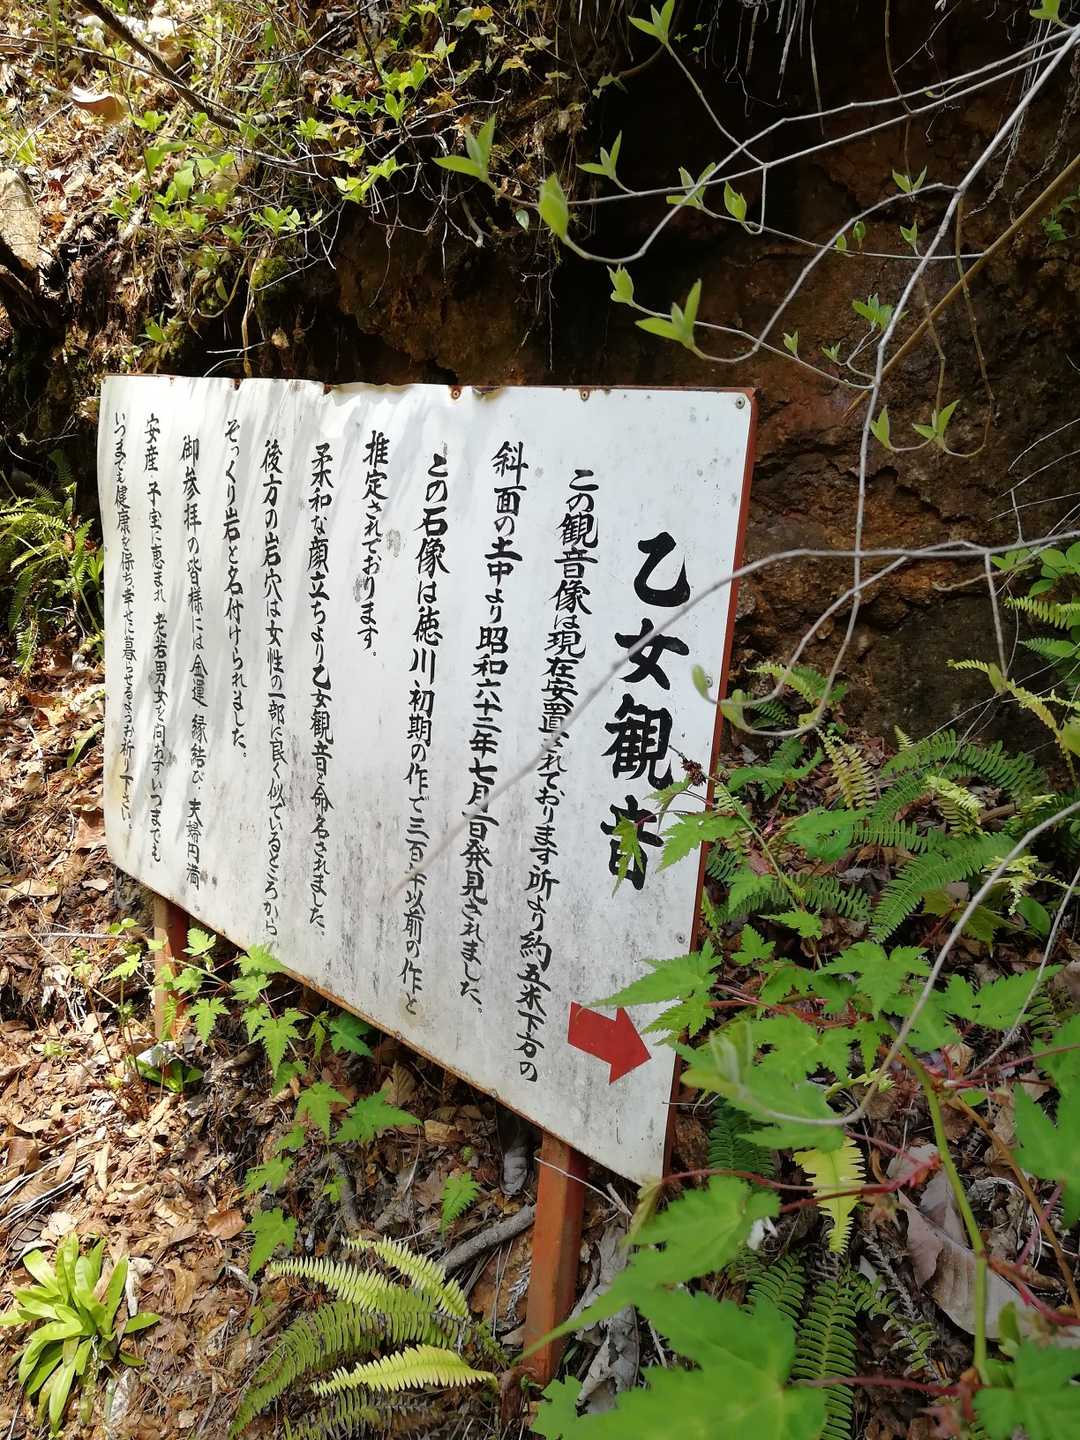 乙女観音
この観音像は現在安置されております所より約五米下方の
斜面の土中より昭和六十二年七月 日発見されました。
この石像は徳川初期の作で三百年以前の作と
推定されております。
柔和な顔立ちより乙女観音と命名されました。
後方の岩穴は女性の一部に良く似ているところから
そっくり岩と名付けられました。
御参拝の皆様には金運 縁結び 夫婦円満
安産・子宝に恵まれ 老若男女を問わずいつまでも
いつまでも健康を保ち幸せに暮らせるようお祈り下さい。